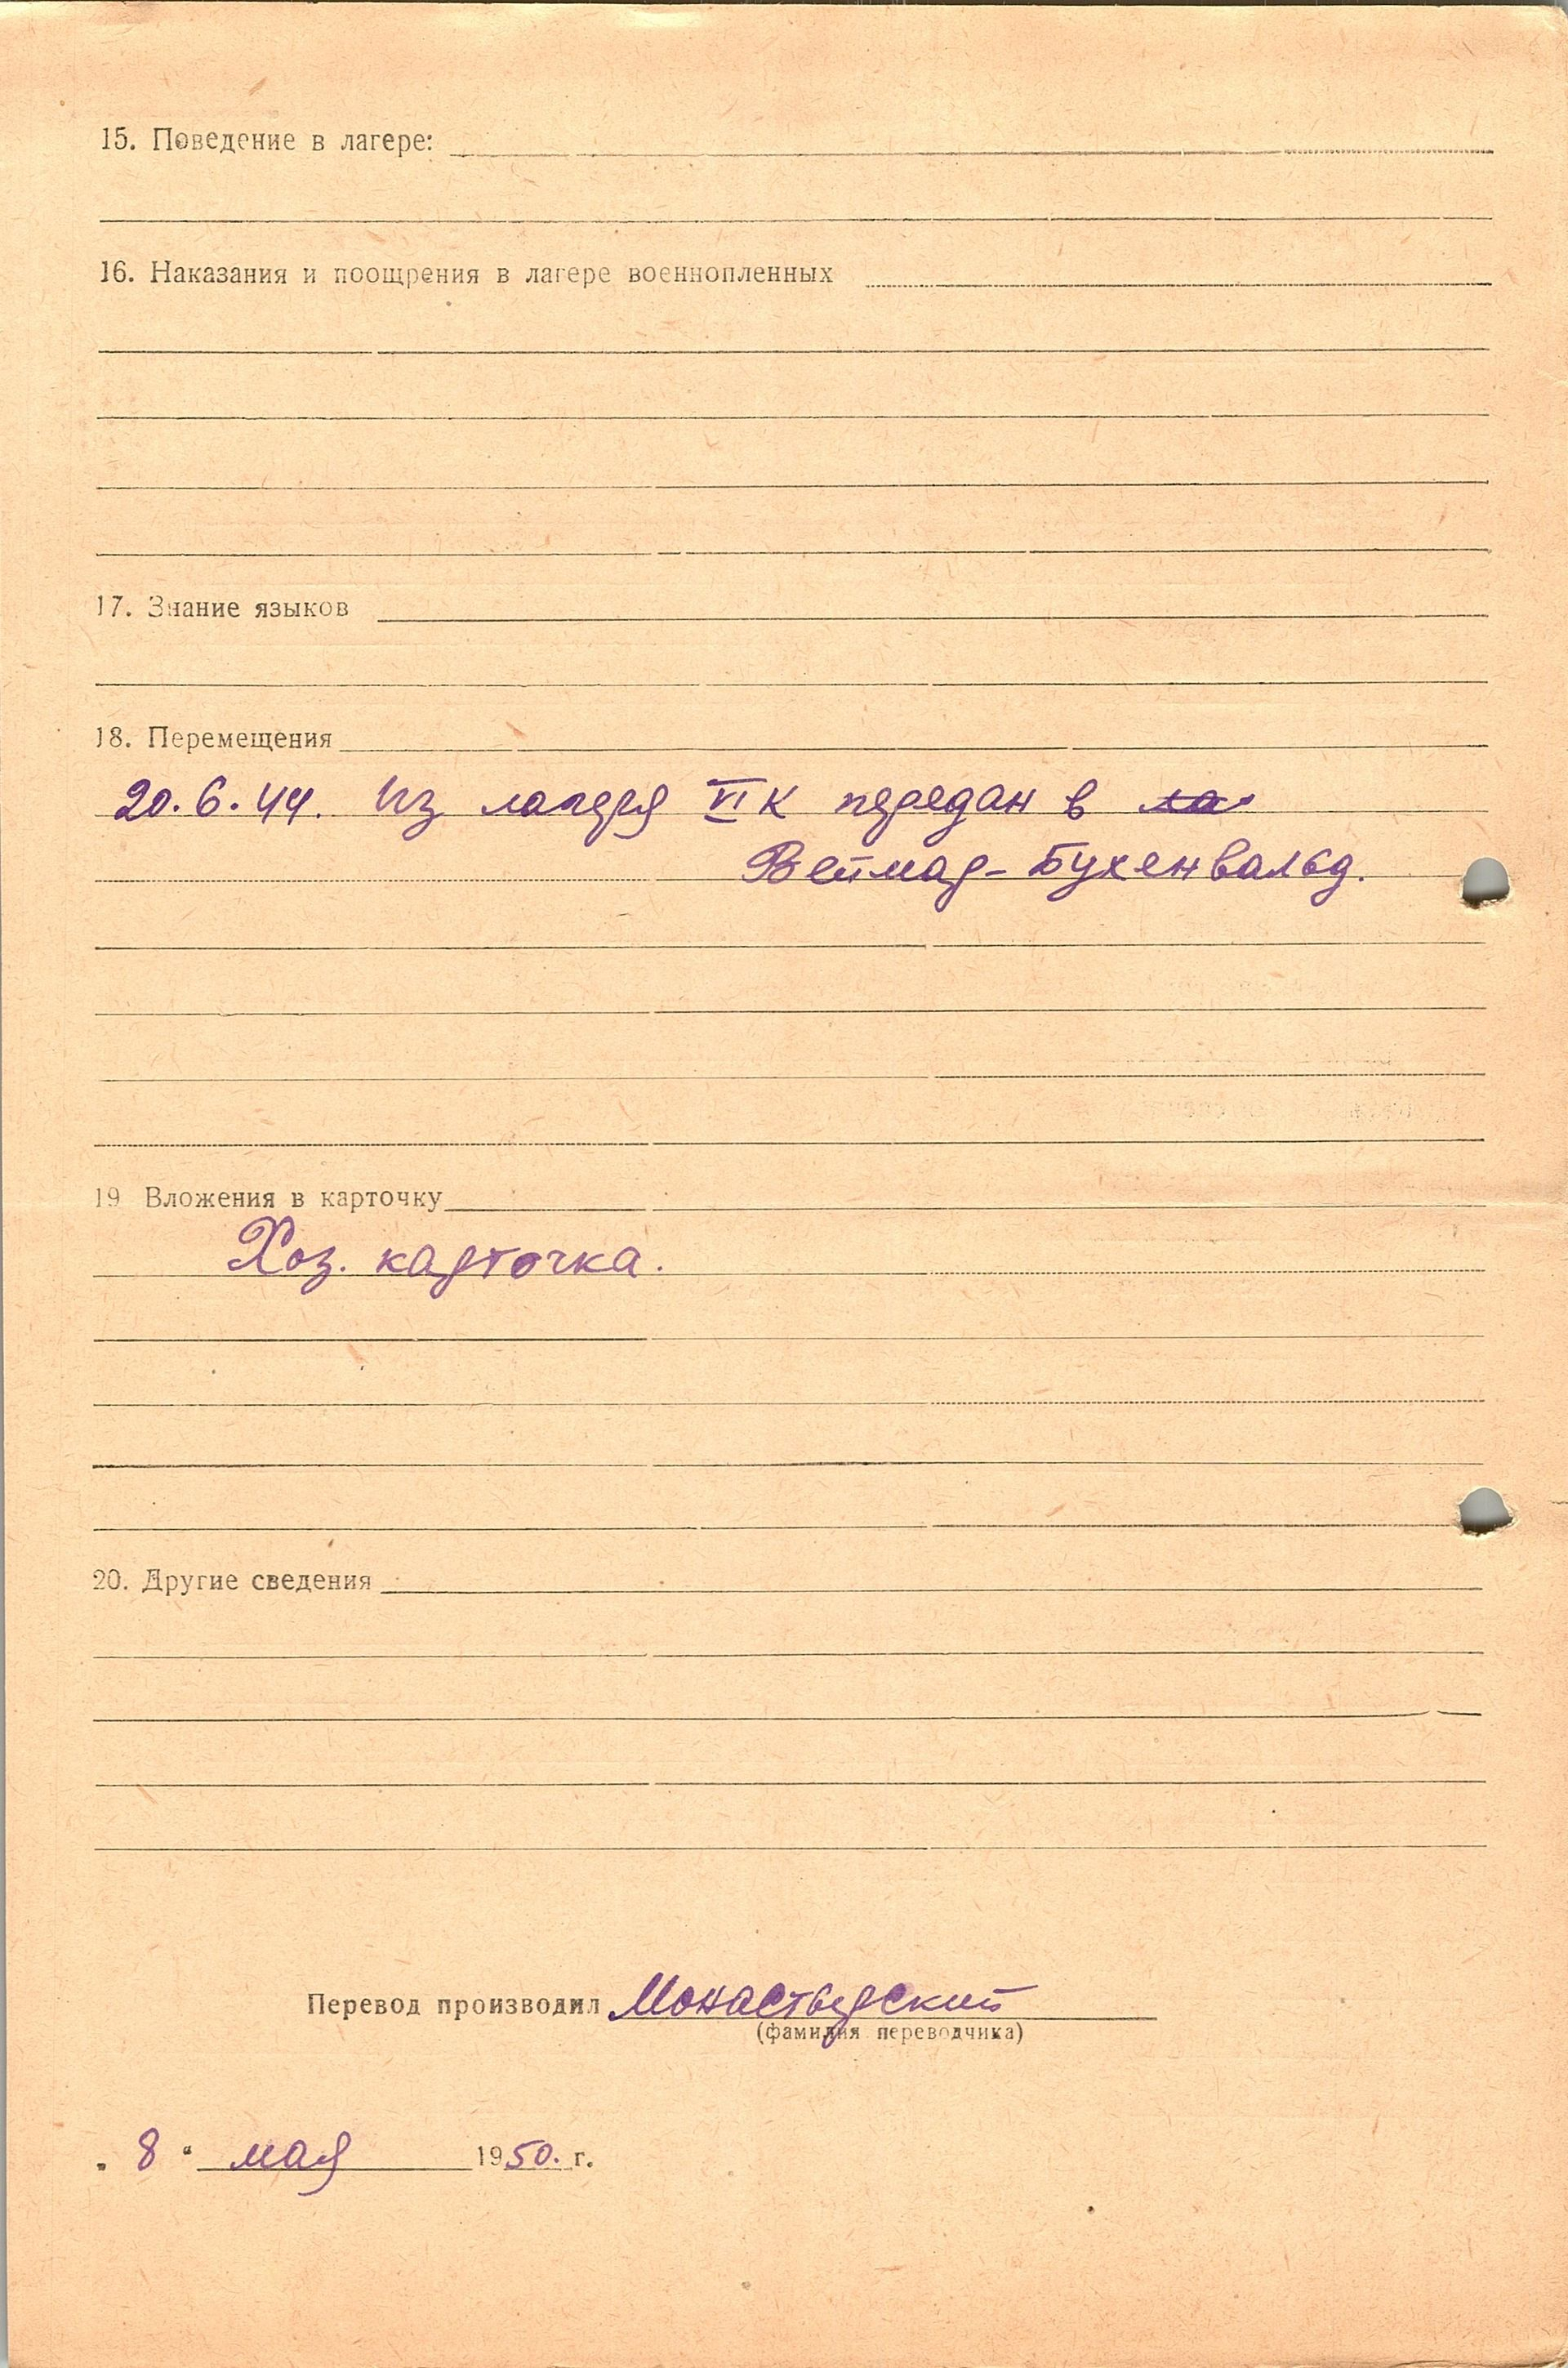 15. Поведение в лагере:
16. Наказания и поощрения в лагере военнопленных
17. Знание языков
18. Перемещения
20.6.44. Из лагеря VI К передан в ла
Веймар-Бухенвальд.
19 Вложения в карточку
Хоз. карточка.
20. Другие сведения
Перевод производил Монастырский
(фамилия переводчика)
„ 8 “ мая 1950. г.